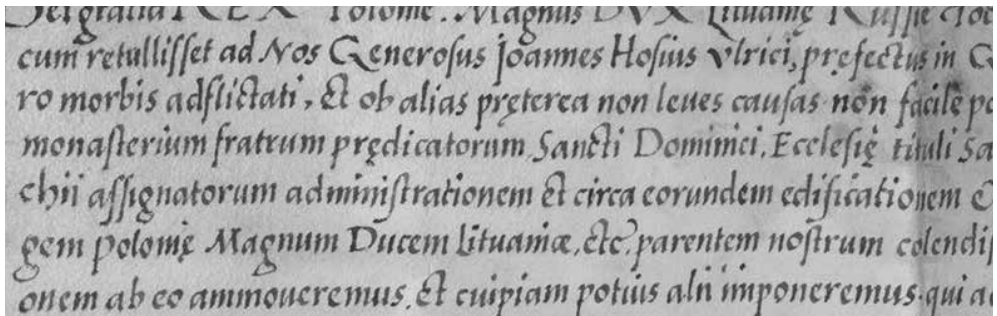 Dei gratia REX Polonię. Magnus DVX Lituanię Russię
cum retullisset ad Nos Generosus Joannes Hosius Vlrici, pręfectus in
ro morbis adflictati, Et ob alias pręterea non leues causas non facile
monasterium fratrum prędicatorum Sancti Dominici, Ecclesię tituli Sa
chii assignatorum administrationem Et circa eorundem edificationem
gem Polonię Magnum Ducem Lituaniæ, Etc, parentem nostrum colendis
onem ab eo ammoueremus, Et cuipiam potius alii imponeremus. qui